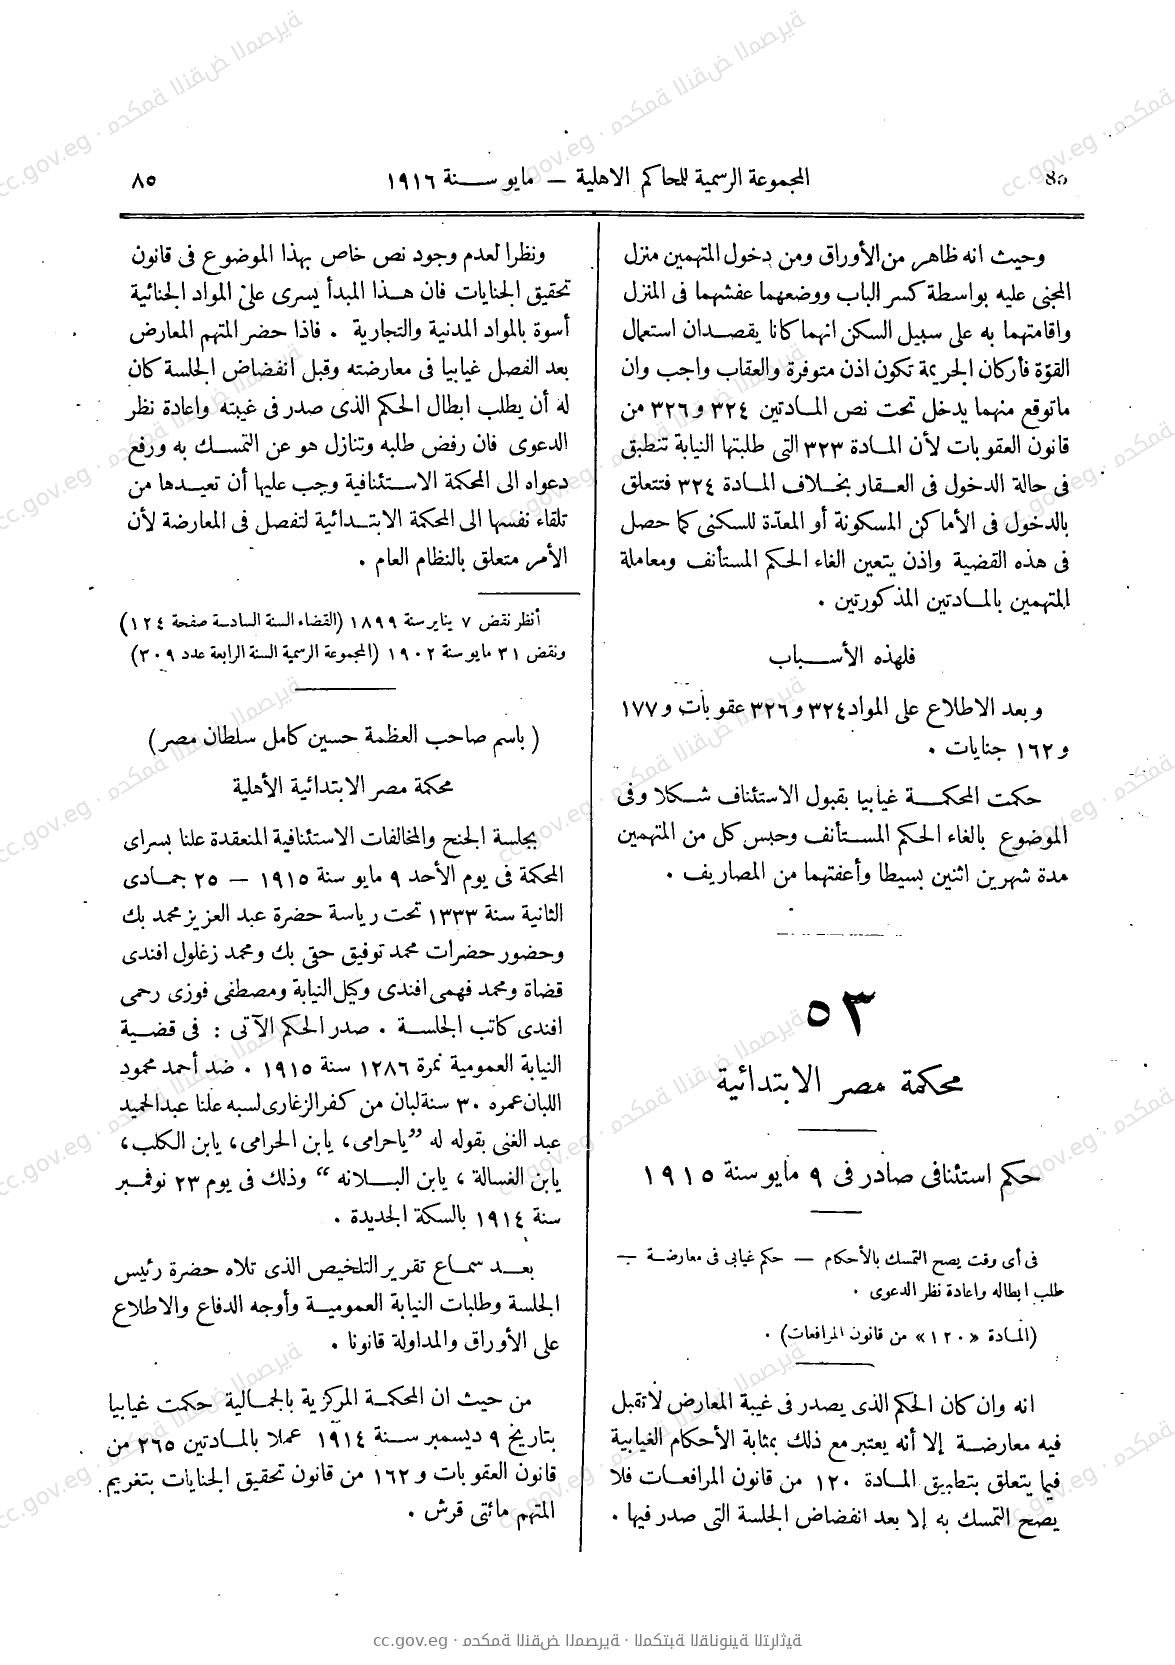 85
المجموعة الرسمية للمحاكم الاهلية — مايو سنة ١٩١٦
٨٥
وحيث انه ظاهر من الأوراق ومن دخول المتهمين منزل
المجنى عليه بواسطة كسر الباب ووضعهما عفشهما فى المنزل
واقامتهما به على سبيل السكن انهما كانا يقصدان استعمال
القوّة فأركان الجريمة تكون اذن متوفرة والعقاب واجب وان
ماتوقع منهما يدخل تحت نص المادتين ٣٢٤ و٣٢٦ من
قانون العقوبات لأن المادة ٣٢٣ التى طلبتها النيابة تنطبق
فى حالة الدخول فى العقار بخلاف المادة ٣٢٤ فتتعلق
بالدخول فى الأماكن المسكونة أو المعدّة للسكنى كما حصل
فى هذه القضية واذن يتعين الغاء الحكم المستأنف ومعاملة
المتهمين بالمادتين المذكورتين .
فلهذه الأسباب
وبعد الاطلاع على المواد ٣٢٤ و٣٢٦ عقوبات و١٧٧
و١٦٢ جنايات .
حكمت المحكمة غيابيا بقبول الاستئناف شكلا وفى
الموضوع بالغاء الحكم المستأنف وحبس كل من المتهمين
مدة شهرين اثنين بسيطا وأعفتهما من المصاريف .
٥٣
محكمة مصر الابتدائية
حكم استئنافى صادر فى ٩ مايو سنة ١٩١٥
فى أى وقت يصح التمسك بالأحكام — حكم غيابى فى معارضة —
طلب ابطاله واعادة نظر الدعوى .
(المادة «١٢٠» من قانون المرافعات) .
انه وان كان الحكم الذى يصدر فى غيبة المعارض لاتقبل
فيه معارضة إلا أنه يعتبر مع ذلك بمثابة الأحكام الغيابية
فيما يتعلق بتطبيق المادة ١٢٠ من قانون المرافعات فلا
يصح التمسك به إلا بعد انفضاض الجلسة التى صدر فيها .
ونظرا لعدم وجود نص خاص بهذا الموضوع فى قانون
تحقيق الجنايات فان هذا المبدأ يسرى على المواد الجنائية
أسوة بالمواد المدنية والتجارية . فاذا حضر المتهم المعارض
بعد الفصل غيابيا فى معارضته وقبل انفضاض الجلسة كان
له أن يطلب ابطال الحكم الذى صدر فى غيبته واعادة نظر
الدعوى فان رفض طلبه وتنازل هو عن التمسك به ورفع
دعواه الى المحكمة الاستئنافية وجب عليها أن تعيدها من
تلقاء نفسها الى المحكمة الابتدائية لتفصل فى المعارضة لأن
الأمر متعلق بالنظام العام .
أنظر نقض ٧ يناير سنة ١٨٩٩ (القضاء السنة السادسة صفحة ١٢٤)
ونقض ٣١ مايو سنة ١٩٠٢ (المجموعة الرسمية السنة الرابعة عدد ٣٠٩)
( باسم صاحب العظمة حسين كامل سلطان مصر )
محكمة مصر الابتدائية الأهلية
بجلسة الجنح والمخالفات الاستئنافية المنعقدة علنا بسراى
المحكمة فى يوم الأحد ٩ مايو سنة ١٩١٥ — ٢٥ جمادى
الثانية سنة ١٣٣٣ تحت رياسة حضرة عبد العزيز محمد بك
وحضور حضرات محمد توفيق حقى بك ومحمد زغلول افندى
قضاة ومحمد فهمى افندى وكيل النيابة ومصطفى فوزى رحمى
افندى كاتب الجلسة . صدر الحكم الآتى : فى قضية
النيابة العمومية نمرة ١٢٨٦ سنة ١٩١٥ . ضد أحمد محمود
اللبان عمره ٣٠ سنة لبان من كفر الزغارى لسبه علنا عبد الحميد
عبد الغنى بقوله له ”ياحرامى، يابن الحرامى، يابن الكلب،
يابن الغسالة ، يابن البلانه “ وذلك فى يوم ٢٣ نوفمبر
سنة ١٩١٤ بالسكة الجديدة .
بعد سماع تقرير التلخيص الذى تلاه حضرة رئيس
الجلسة وطلبات النيابة العمومية وأوجه الدفاع والاطلاع
على الأوراق والمداولة قانونا .
من حيث ان المحكمة المركزية بالجمالية حكمت غيابيا
بتاريخ ٩ ديسمبر سنة ١٩١٤ عملا بالمادتين ٢٦٥ من
قانون العقوبات و١٦٢ من قانون تحقيق الجنايات بتغريم
المتهم مائتى قرش .
cc.gov.eg · محكمة النقض المصرية · المكتبة القانونية التراثية